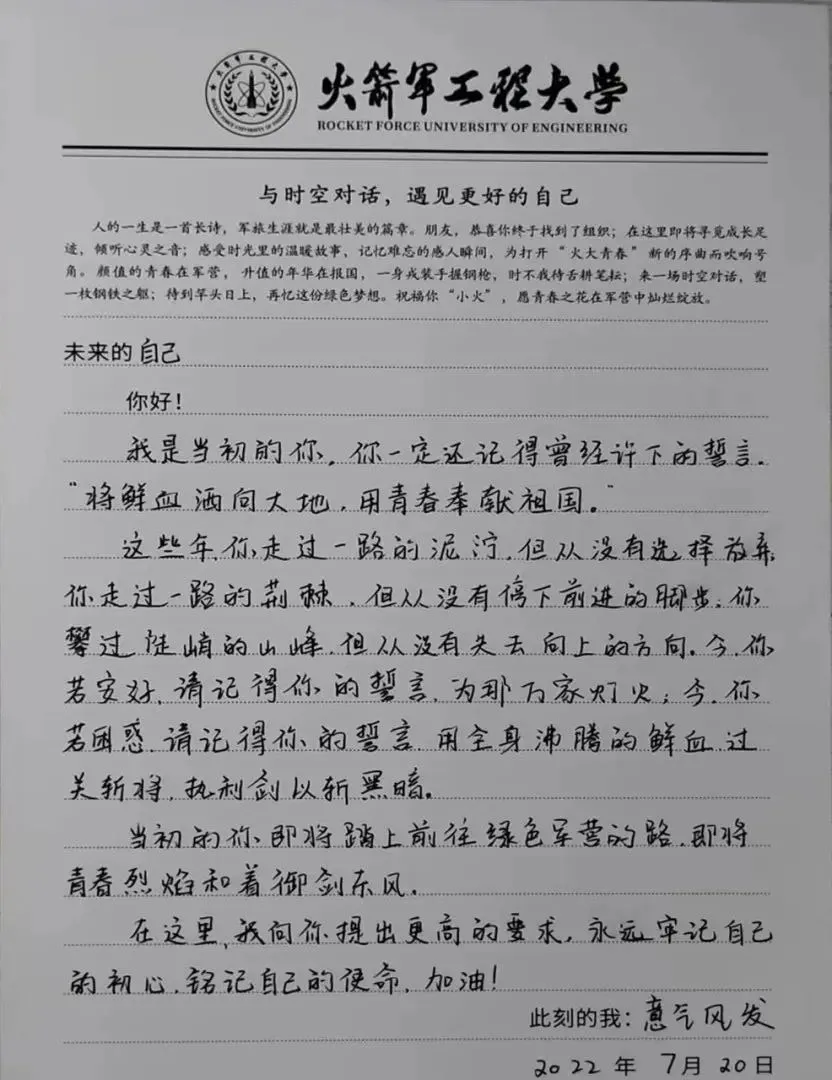 火箭军工程大学
ROCKET FORCE UNIVERSITY OF ENGINEERING
火箭军工程大学
ROCKET FORCE UNIVERSITY OF ENGINEERING
与时空对话，遇见更好的自己
人的一生是一首长诗，军旅生涯就是最壮美的篇章。朋友，恭喜你终于找到了组织；在这里即将寻觅成长足
迹，倾听心灵之音；感受时光里的温暖故事，记忆难忘的感人瞬间，为打开“火大青春”新的序曲而吹响号
角。颜值的青春在军营，升值的年华在报国，一身戎装手握钢枪，时不我待舌耕笔耘；来一场时空对话，塑
一枚钢铁之躯；待到竿头日上，再忆这份绿色梦想。祝福你“小火”，愿青春之花在军营中灿烂绽放。
未来的自己
你好！
我是当初的你，你一定还记得曾经许下的誓言。
“将鲜血洒向大地，用青春奉献祖国。”
这些年，你走过一路的泥泞，但从没有选择放弃
你走过一路的荆棘，但从没有停下前进的脚步；你
攀过陡峭的山峰，但从没有失去向上的方向。今，你
若安好，请记得你的誓言，为那万家灯火；今，你
若困惑，请记得你的誓言，用全身沸腾的鲜血过
关斩将，执利剑以斩黑暗。
当初的你即将踏上前往绿色军营的路，即将
青春烈焰和着御剑东风。
在这里，我向你提出更高的要求，永远牢记自己
的初心，铭记自己的使命，加油！
此刻的我：意气风发
2022年 7月20日